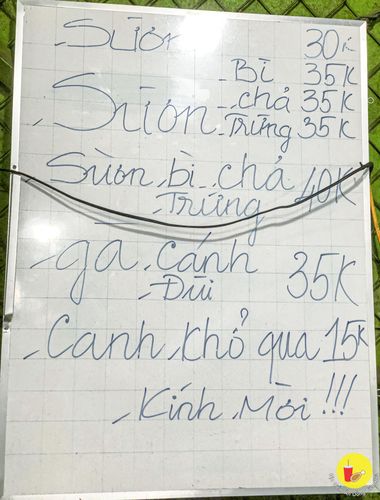 - Sườn 30K
- Bì 35K
- Sườn - chả 35K
- Trứng 35K
Sườn - bì - chả 40K
- Trứng
- gà - Cánh
- Đùi 35K
- Canh Khổ qua 15K
- Kính Mời !!!